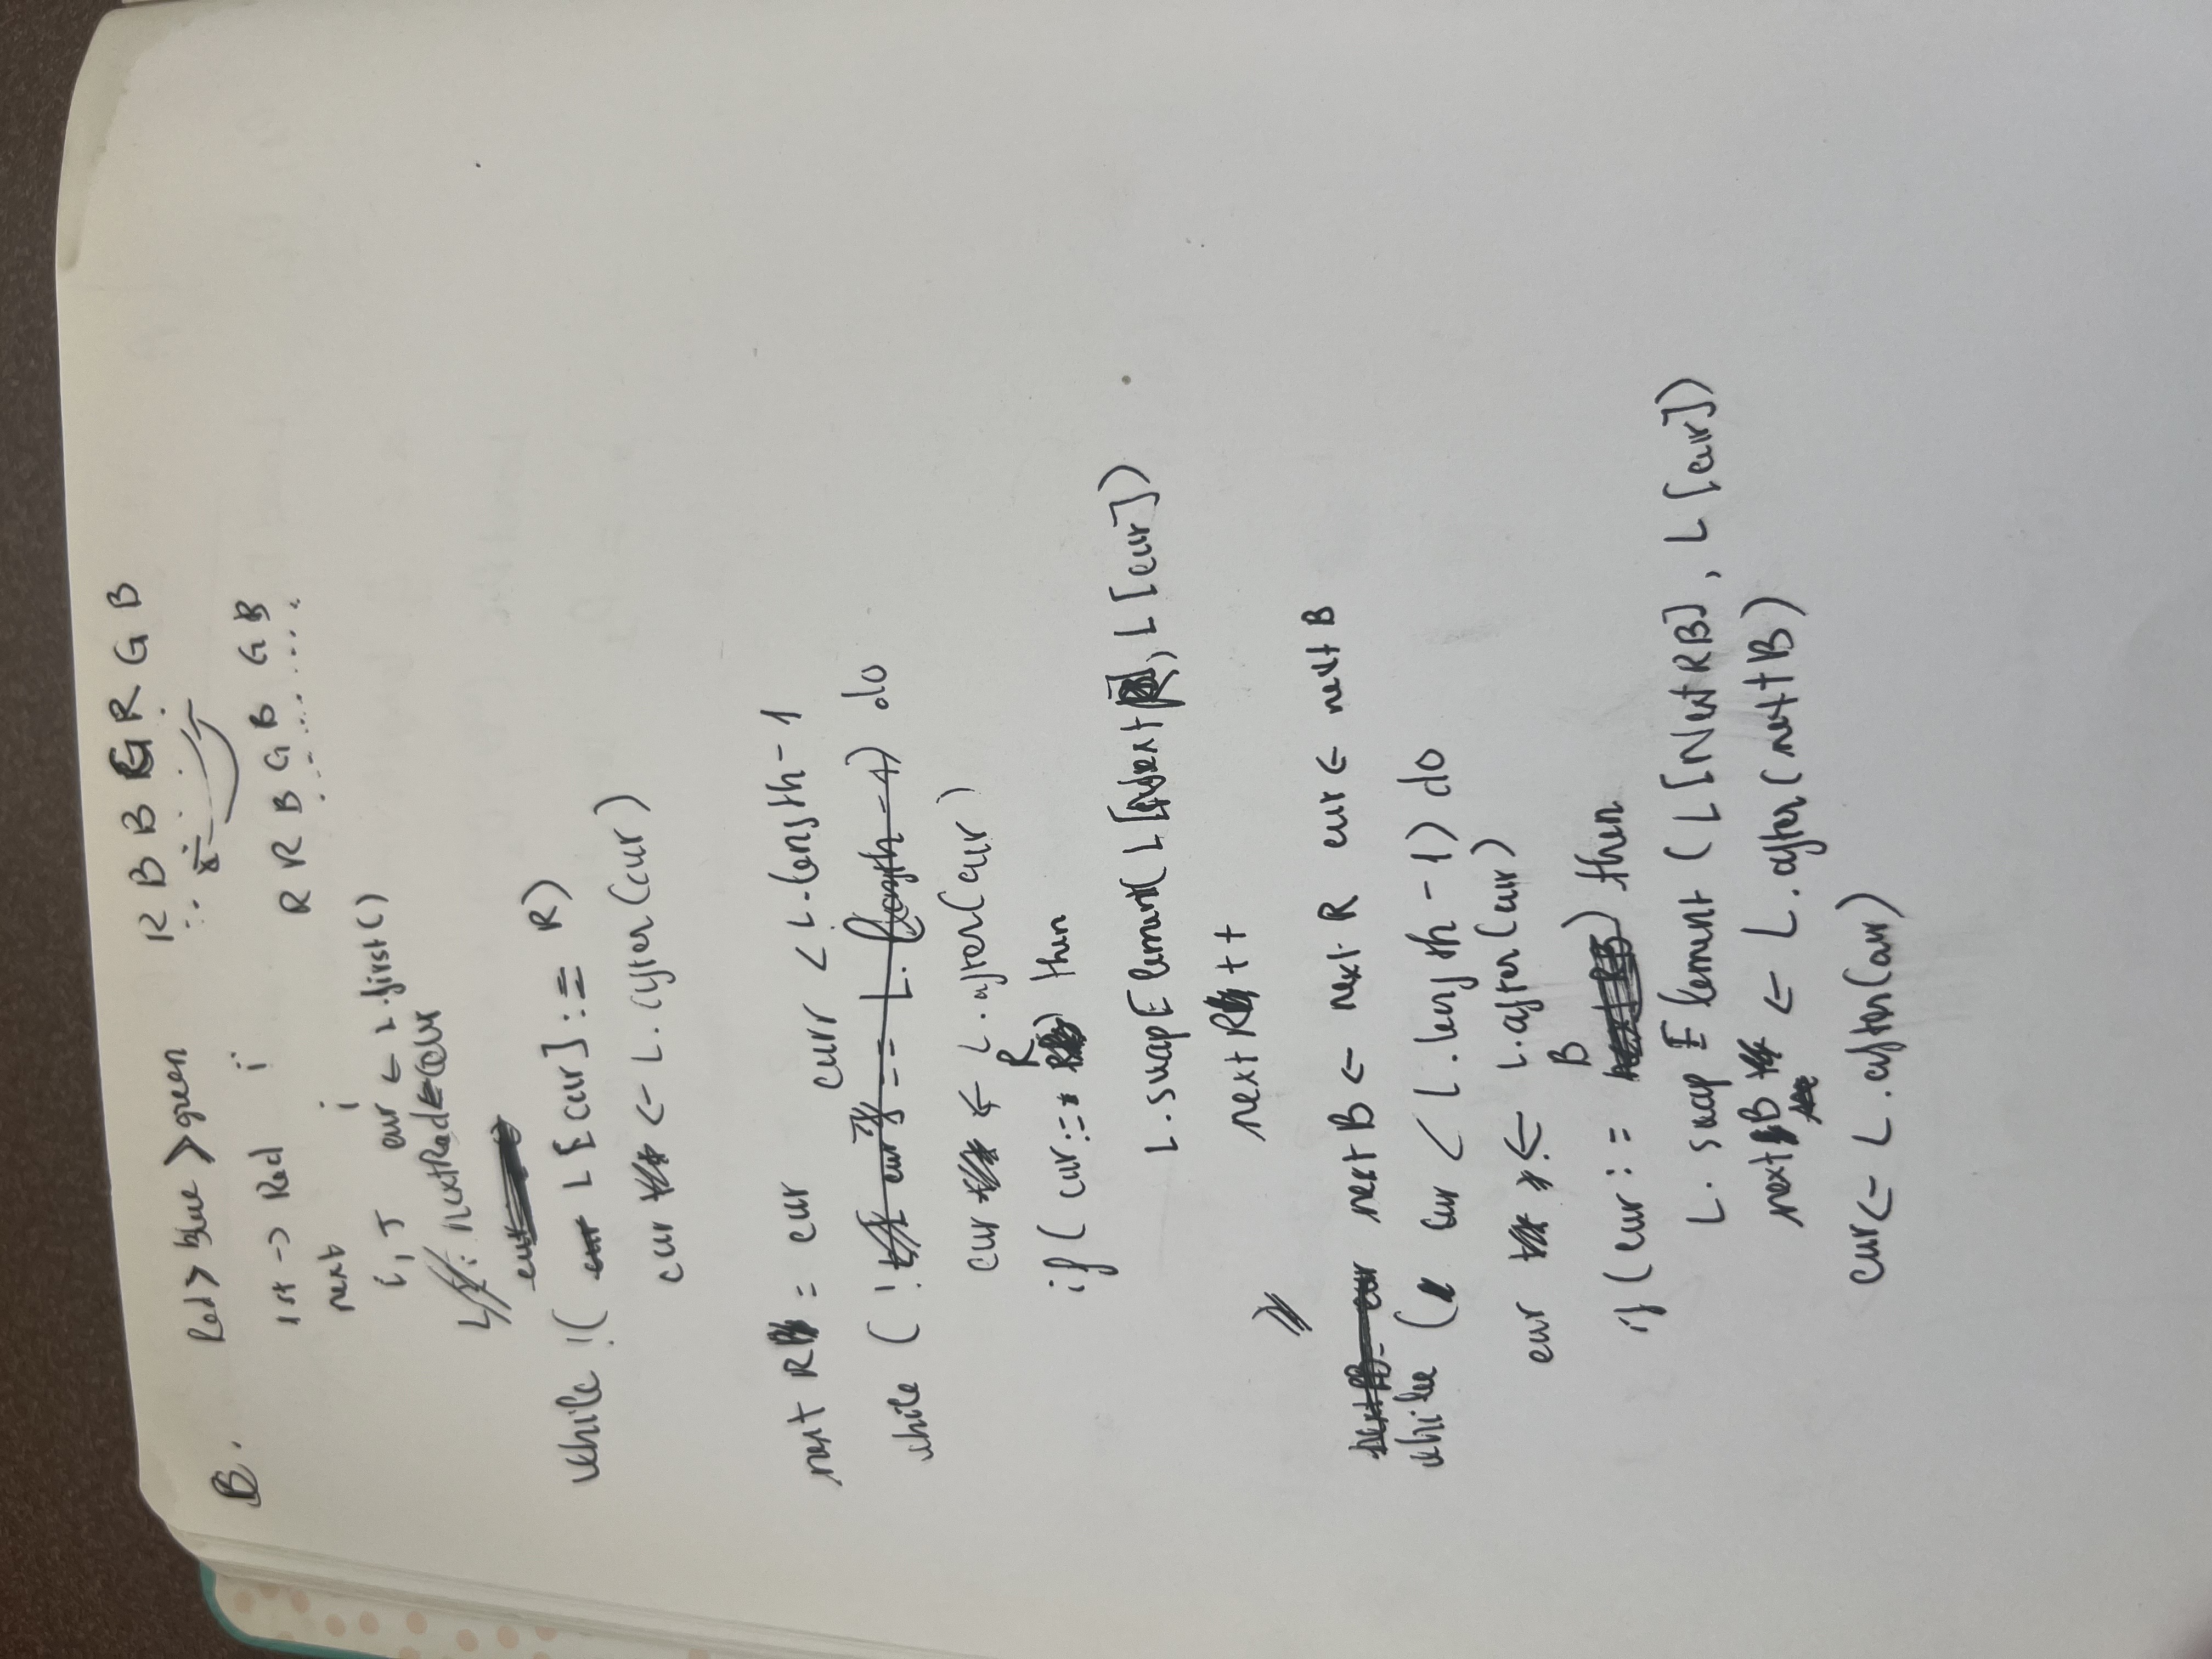 B. Red > blue > green R B B G R G B
1st -> Red i
R R B G B G B
next i
i, J cur ← L.first()
nextRed ← cur
while !( L[cur] := R)
cur ← L.after(cur)
next R = cur
curr < L.length-1
while ( ! == L.length-1) do
cur ← L.after(cur)
R
if ( cur := ) then
L.swapElement( L[Next R], L[cur])
next R ++
next B ← next R cur ← next B
while ( cur < L.length-1) do
cur ← L.after(cur)
B
if (cur := ) then
L. swap Element (L[Next RB], L[cur])
next B ← L.after(next B)
cur ← L.after(cur)